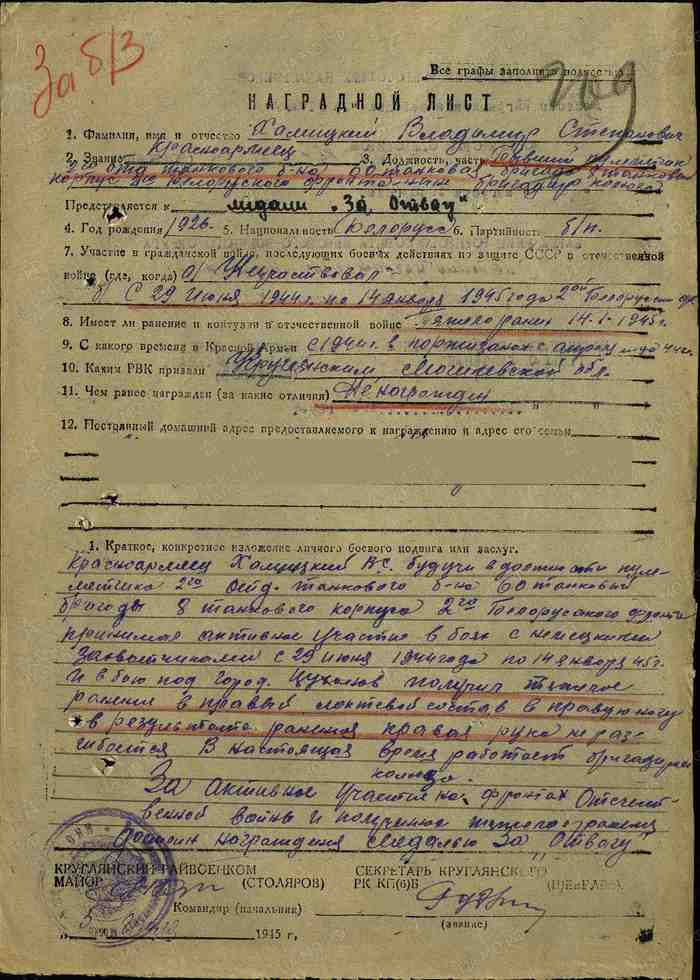 За б/з
209
Все графы заполнить полностью
НАГРАДНОЙ ЛИСТ
1. Фамилия, имя и отчество Халицкий Владимир Степанович
2. Звание Красноармеец 3. Должность, часть Бывший пулеметчик
2го отд танкового б-на 60 танковая бригада 8 танковый
корпус 2го Белорусского фронта ныне бригадир колхоза
Представляется к медали "За Отвагу"
4. Год рождения 1926. 5. Национальность Белорусс 6. Партийность б/п.
7. Участие в гражданской войне, последующих боевых действиях по защите СССР и отечественной
войне (где, когда) а) Не участвовал
б) С 29 июня 1944г. по 14 января 1945 года 2ой Белорусский фр.
8. Имеет ли ранение и контузии в отечественной войне тяжело ранен 14.1-1945г.
9. С какого времени в Красной Армии с 1944г. в портизанах с
10. Каким РВК призван Круглянским Могилевской обл.
11. Чем ранее награжден (за какие отличия) Не награжден
12. Постоянный домашний адрес предоставляемого к награждению и адрес его семьи
1. Краткое, конкретное изложение личного боевого подвига или заслуг.
Красноармеец Халицкий В.С. будучи в должности пуле-
метчика 2го отд. танкового б-на 60 танковый
бригады 8 танкового корпуса 2го Белоруского фронта
принимая активное участие в боях с немецкими
захватчиками с 29 июня 1944 года по 14 января 45г.
и в бою под город. получил тяжелое
ранение в правый локтевой состав в правую ногу
в результате ранения правая рука не раз-
гибается В настоящая время работает бригадиром
колхоза.
За активное участие на фронтах Отечест-
венной войны и полученное тяжелое ранение
достоин награждения медалью За "Отвагу"
КРУГЛЯНСКИЙ РАЙВОЕНКОМ СЕКРЕТАРЬ КРУГЛЯНСКОГО
МАЙОР (СТОЛЯРОВ) РК КП(б)Б
Командир (начальник)
(звание)
1945 г.